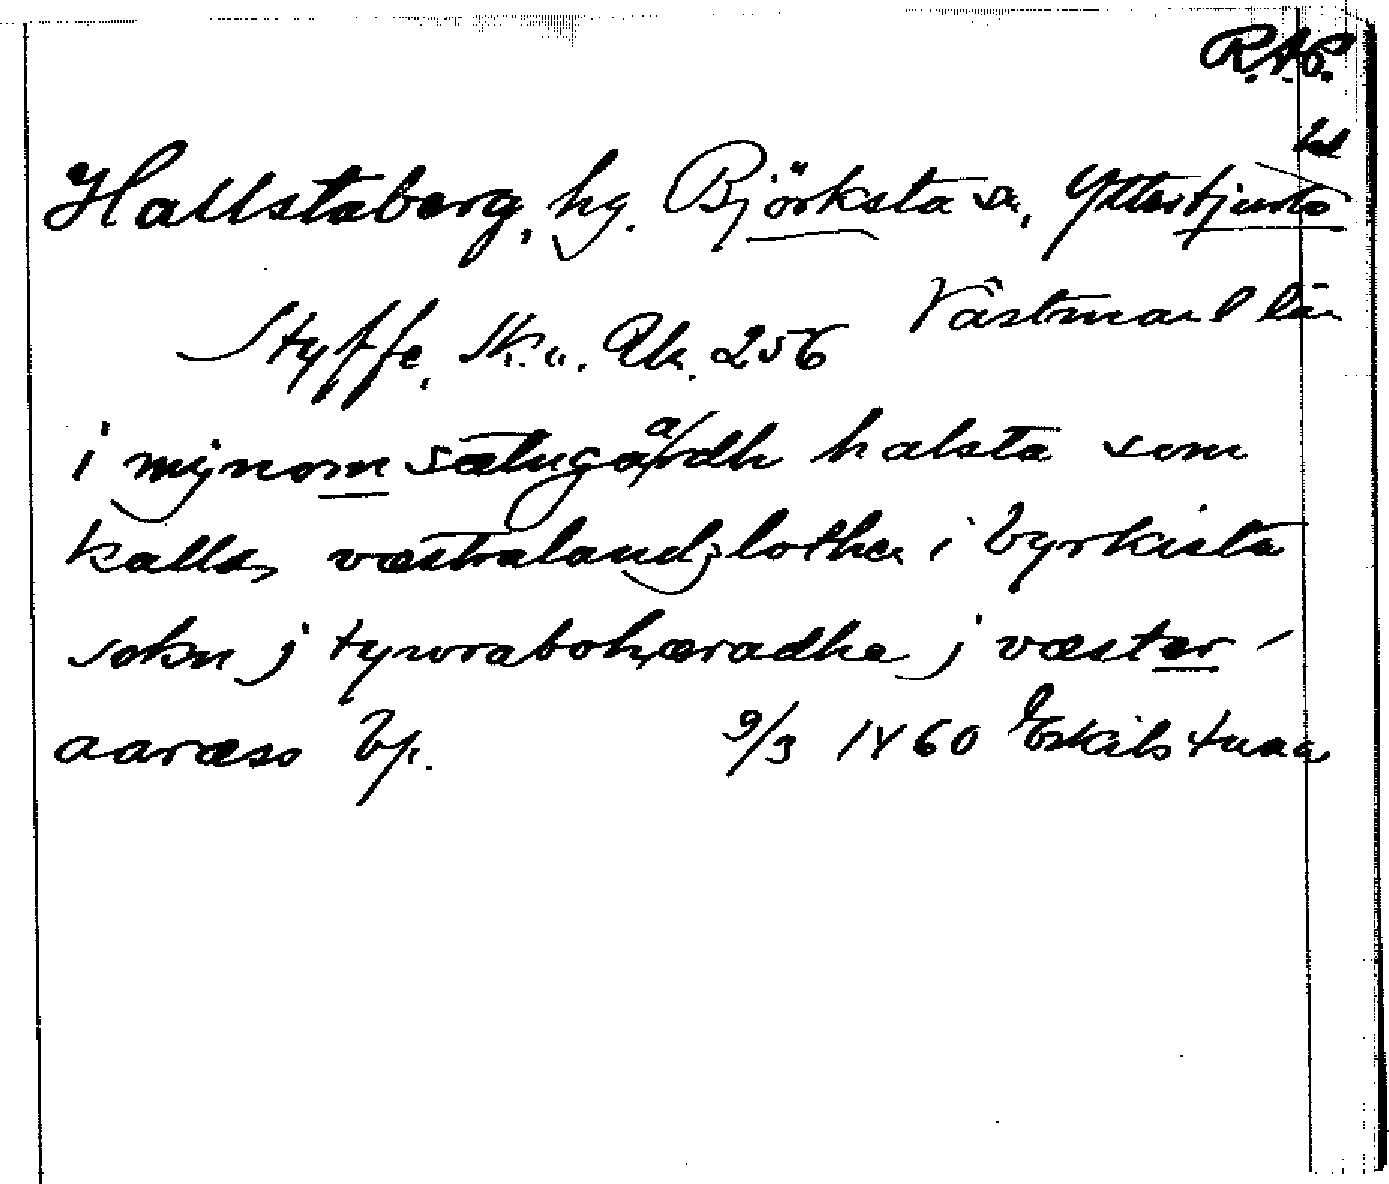 R.A.P.
hd
Hallstaberg, hg. Björksta sn, Yttertjurbo
Västmanl län
Styffe, Sk. u. Ut. 256
i mynom sætugaardh halsta som
kallas væstralandzlothen i byrkista
sokn j tywrabohæradhe j væster-
aaræss bp. 9/3 1460 Eskilstuna